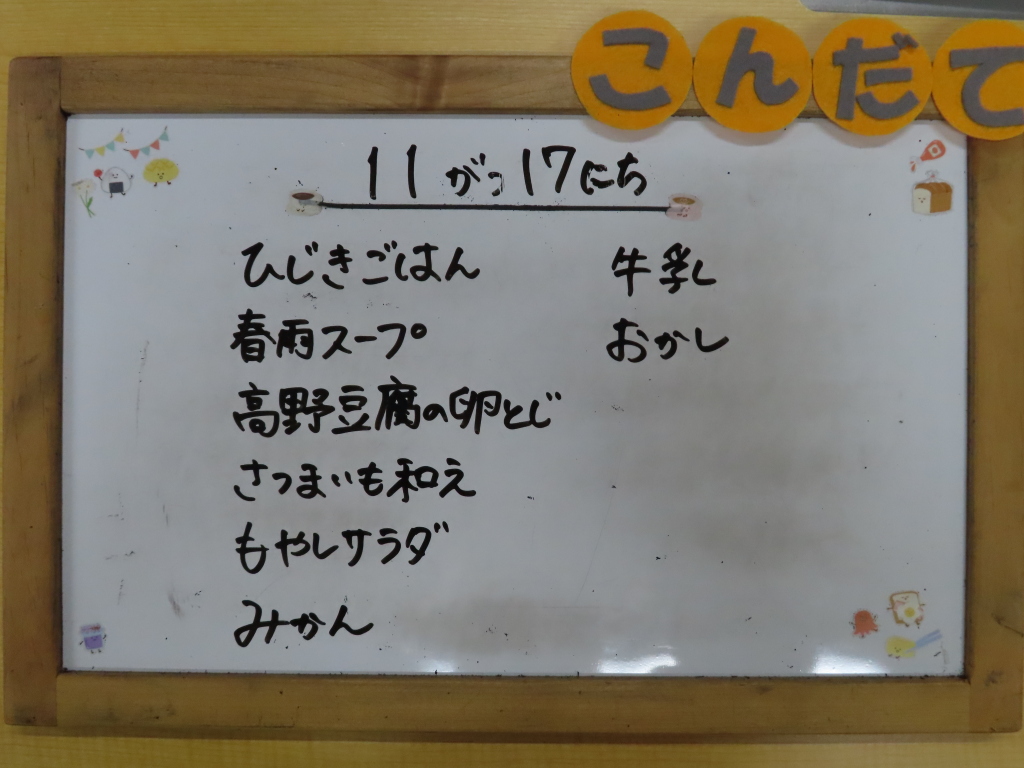 こんだて
11がつ17にち
ひじきごはん
春雨スープ
高野豆腐の卵とじ
さつまいも和え
もやしサラダ
みかん
牛乳
おかし